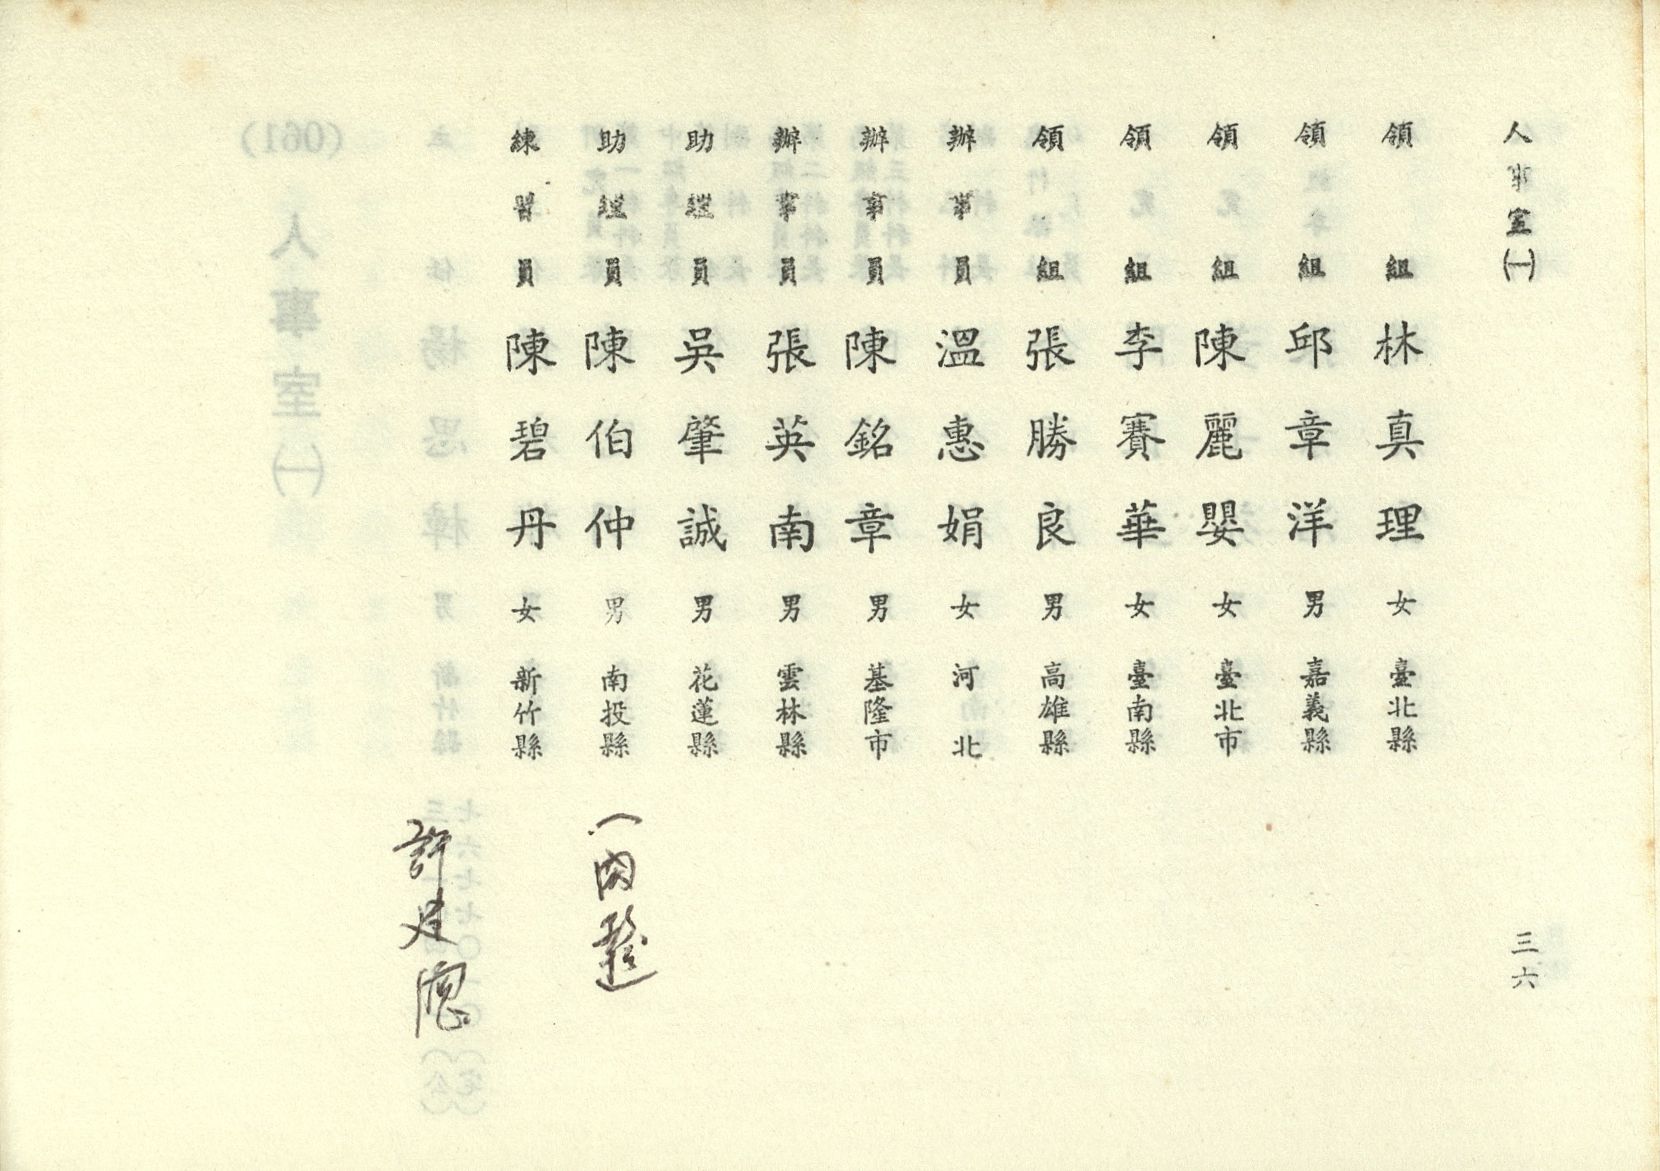 人事室㈠
三六
領組 林真理 女 臺北縣
領組 邱章洋 男 嘉義縣
領組 陳麗嬰 女 臺北市
領組 李賽華 女 臺南縣
領組 張勝良 男 高雄縣
辦事員 溫惠娟 女 河北
辦事員 陳銘章 男 基隆市
辦事員 張英南 男 雲林縣
助理員 吳肇誠 男 花蓮縣
助理員 陳伯仲 男 南投縣
練習員 陳碧丹 女 新竹縣